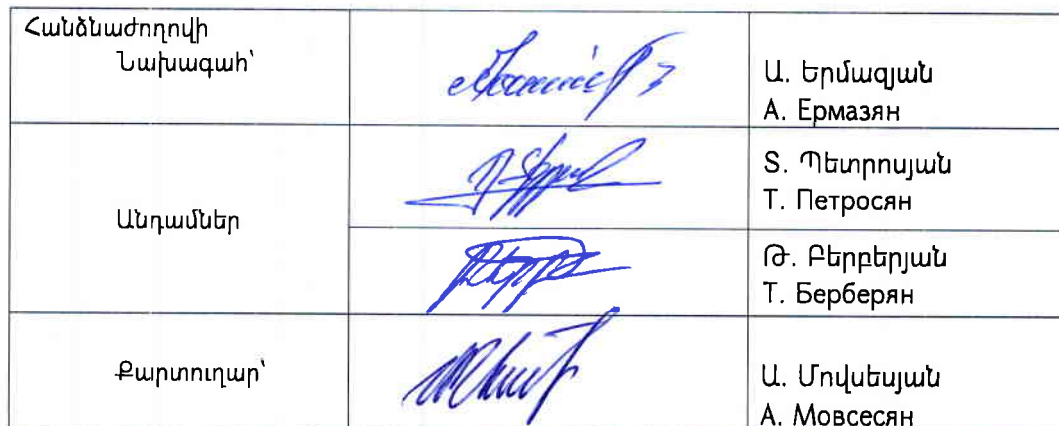 Հանձնաժողովի
Նախագահ՝
Ա. Երմազյան
А. Ермазян
Անդամներ
Տ. Պետրոսյան
Т. Петросян
Թ. Բերբերյան
Т. Берберян
Քարտուղար՝
Ա. Մովսեսյան
А. Мовсесян